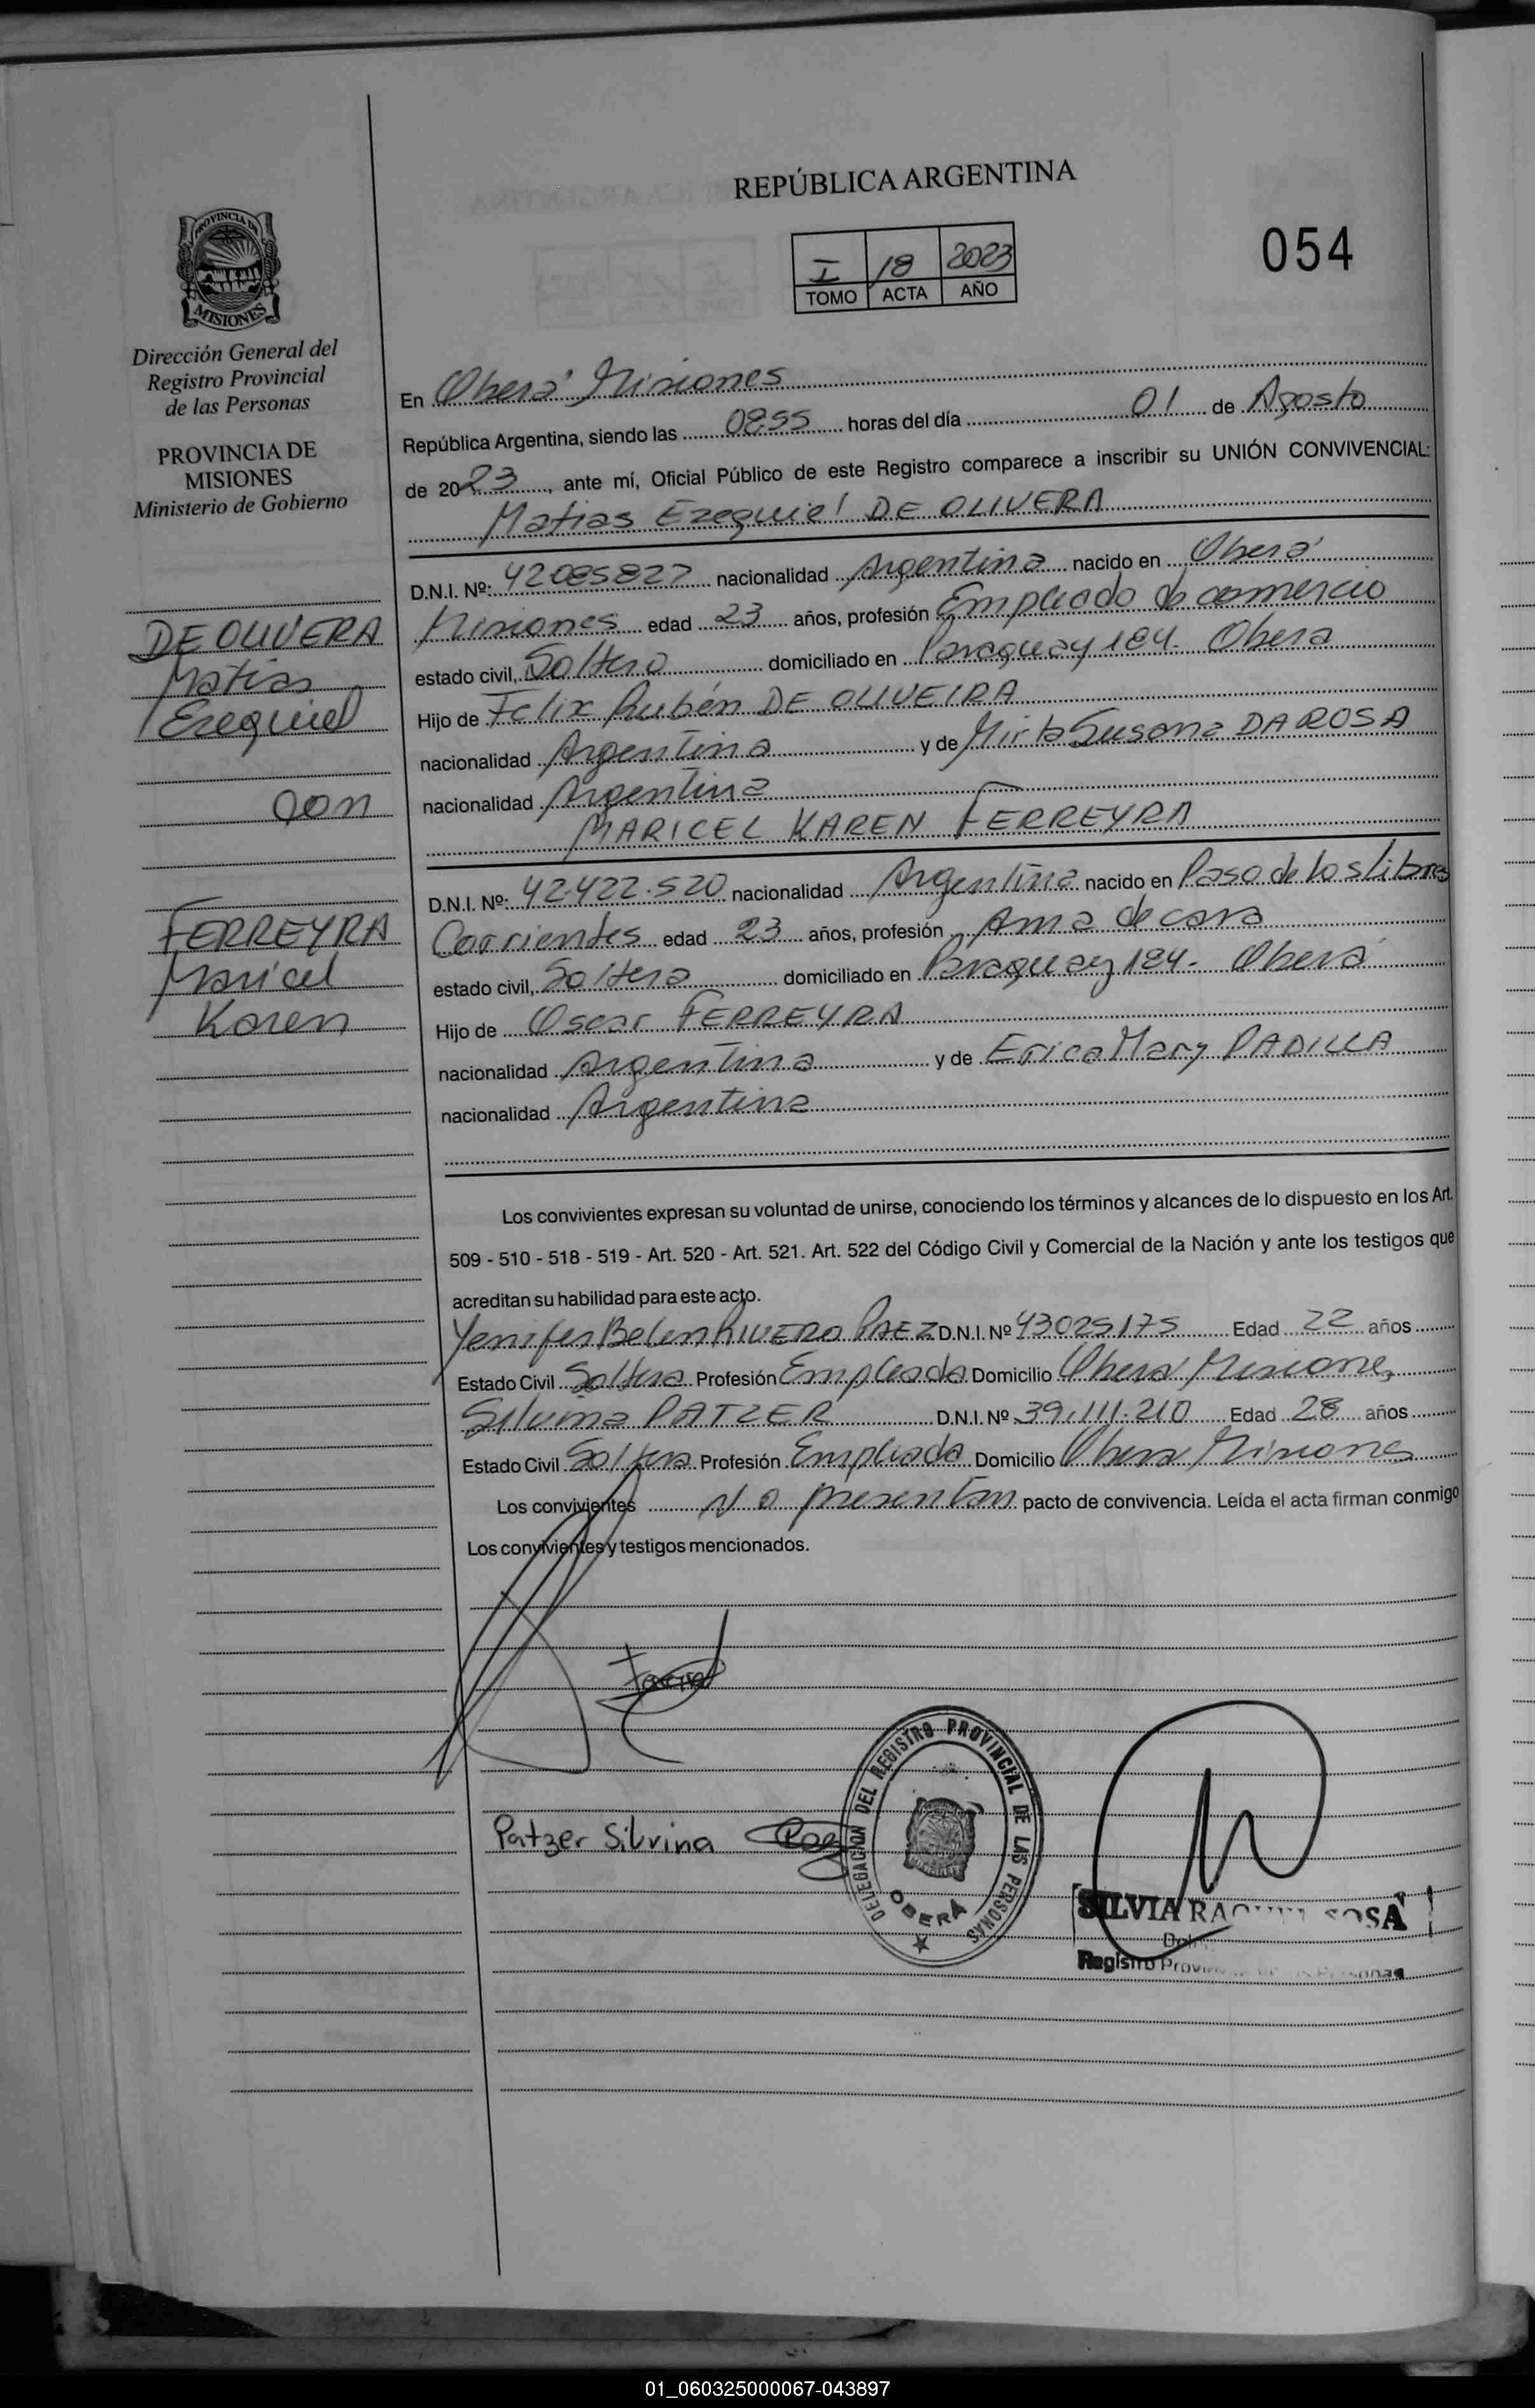 REPÚBLICA ARGENTINA
054
I 18 2023
TOMO ACTA AÑO
PROVINCIA DE
MISIONES
Dirección General del
Registro Provincial
de las Personas
PROVINCIA DE
MISIONES
Ministerio de Gobierno
DE OLIVERA
Matias
Ezequiel
con
FERREYRA
Maricel
Karen
En Oberá Misiones
República Argentina, siendo las 08:55 horas del día 01 de Agosto
de 2023, ante mí, Oficial Público de este Registro comparece a inscribir su UNIÓN CONVIVENCIAL:
Matias Ezequiel DE OLIVERA
D.N.I. Nº: 42085827 nacionalidad Argentina nacido en Oberá
Misiones edad 23 años, profesión Empleado de comercio
estado civil, Soltero domiciliado en Paraguay 184. Obera
Hijo de Felix Rubén DE OLIVEIRA
nacionalidad Argentina y de Mirta Susana DA ROSA
nacionalidad Argentina
MARICEL KAREN FERREYRA
D.N.I. Nº: 42.422.520 nacionalidad Argentina nacido en Paso de los Libres
Corrientes edad 23 años, profesión Ama de casa
estado civil, Soltera domiciliado en Paraguay 184- Oberá
Hijo de Oscar FERREYRA
nacionalidad Argentina y de Erica Mary PADILLA
nacionalidad Argentina
Los convivientes expresan su voluntad de unirse, conociendo los términos y alcances de lo dispuesto en los Art.
509 - 510 - 518 - 519 - Art. 520 - Art. 521. Art. 522 del Código Civil y Comercial de la Nación y ante los testigos que
acreditan su habilidad para este acto.
Yenifer Belen RIVERO PAEZ D.N.I. Nº 43025175 Edad 22 años
Estado Civil Soltera Profesión Empleada Domicilio Obera Misiones
Silvina PATZER D.N.I. Nº 39.111.210 Edad 28 años
Estado Civil Soltera Profesión Empleada Domicilio Obera Misiones
Los convivientes No presentan pacto de convivencia. Leída el acta firman conmigo
Los convivientes y testigos mencionados.
Patzer Silvina
DELEGACION DEL REGISTRO PROVINCIAL DE LAS PERSONAS
OBERÁ
SILVIA RAQUEL SOSA
Registro
01_060325000067-043897